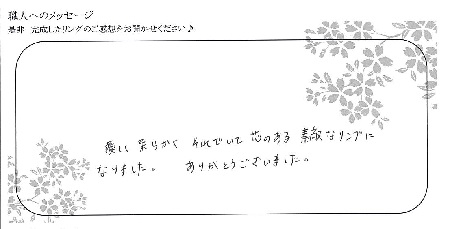 職人へのメッセージ
是非 完成したリングのご感想をお聞かせください♪
優しく 柔らかく それでいて 芯のある 素敵なリングに
なりました。 ありがとうございました。